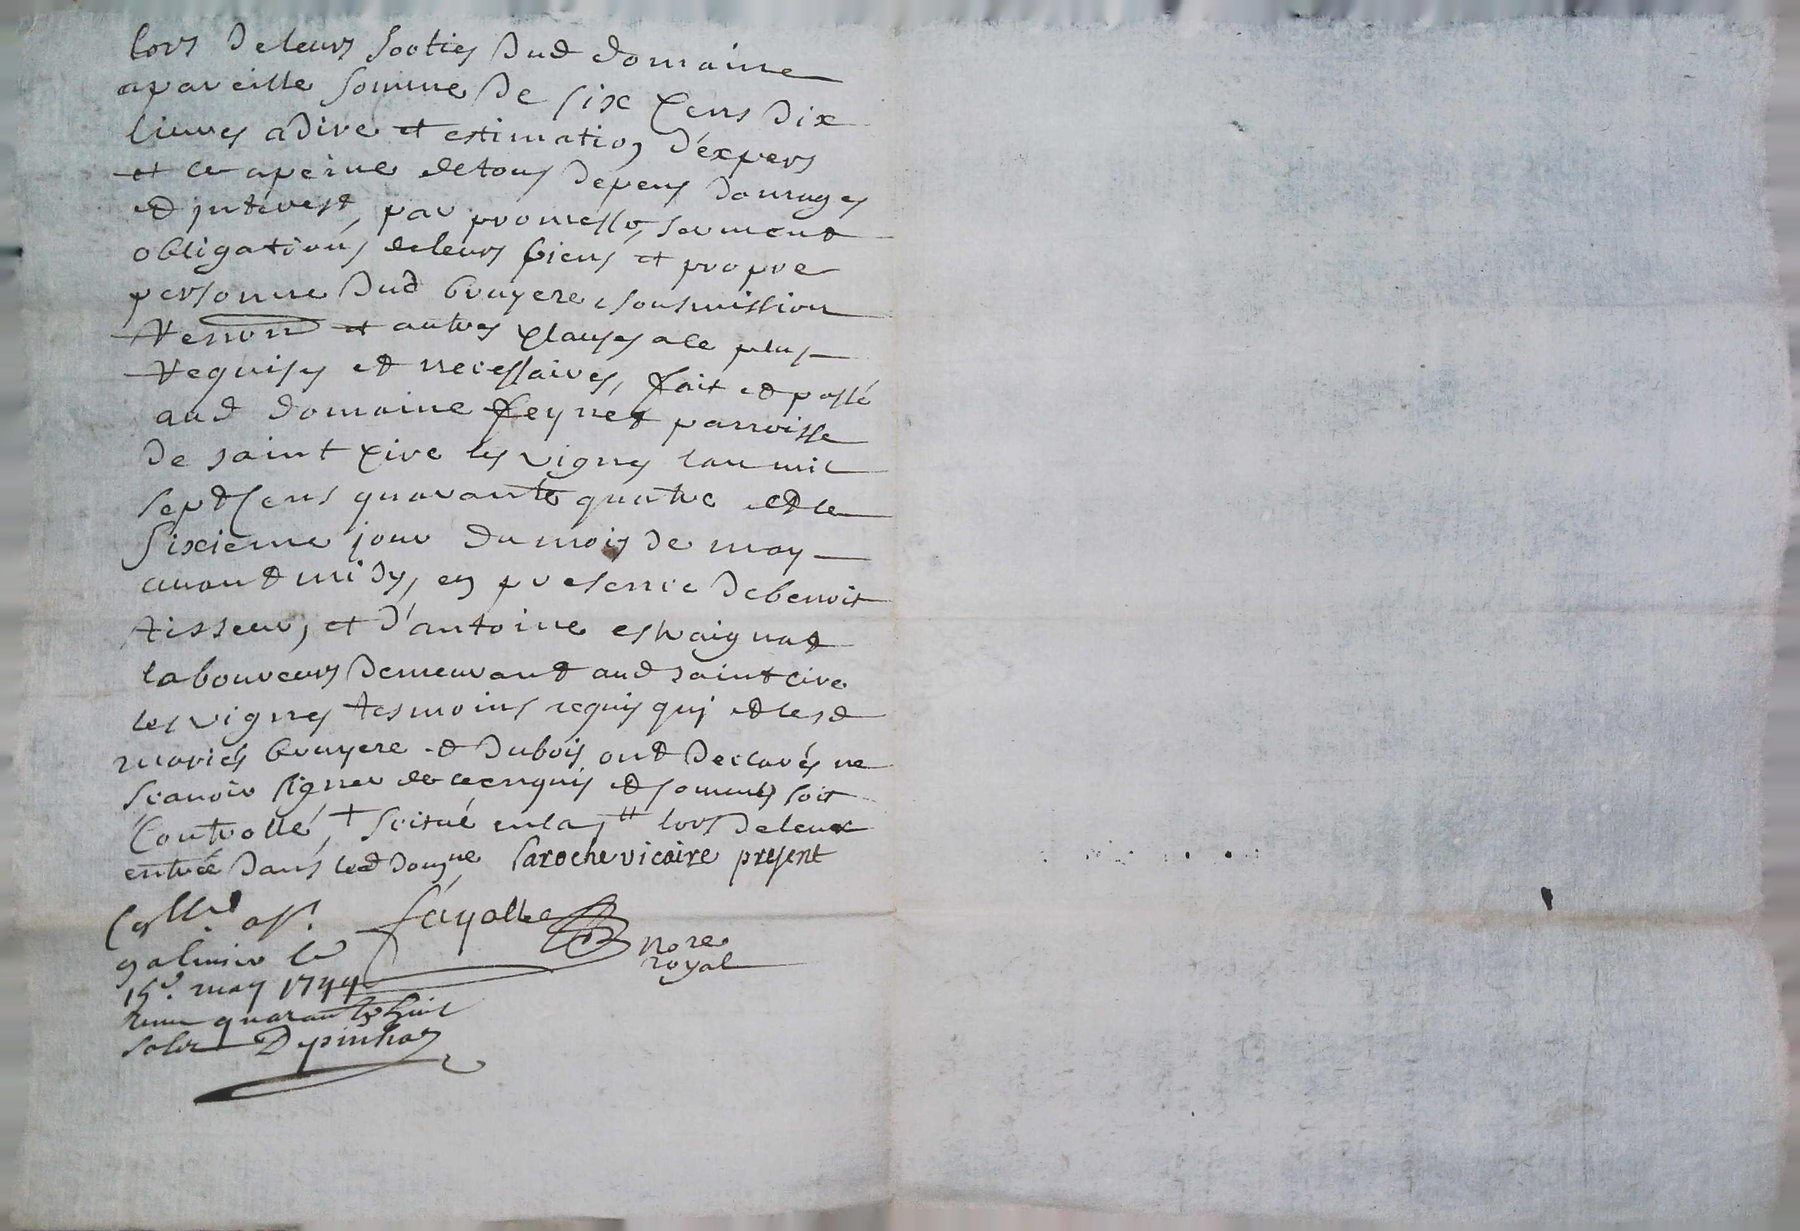 lors deleurs sorties dud domaine
apareille somme de six cens dix
livres adire et estimation d'expers
et ce apeine detous depens domages
et jnterest, par promesse, serment
obligations deleurs biens et propre
personne dud bruyere, sousmission
renon et autres clauses ale plus
requises et necessaires, fait et passé
aud domaine feynet parroisse
de saint cire les vignes lan mil
sept cens quarante quatre et le
sixieme jour du mois de may
avant midy, en presence debenoit
tisseur, et d'antoine estraignat
laboureurs demeurant aud saint cire
les vignes tesmoins requis qui et lesd
mariés bruyere et dubois ont declarés ne
scavoir signer de ce enquis et sommés soit
Controllé, + scitué lors deleur
entrée dans led dom.ne Laroche vicaire present
Coll.né
fayolle
no.re
royal
galmier le
15e. may 1744
quarante huit
sols Depinhac